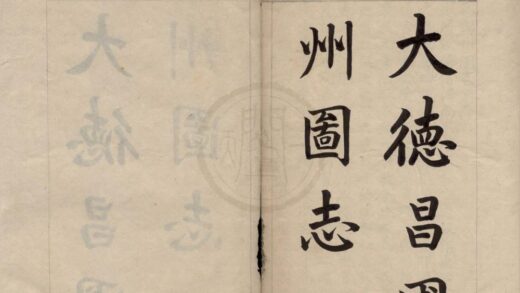 大德昌
州圖志